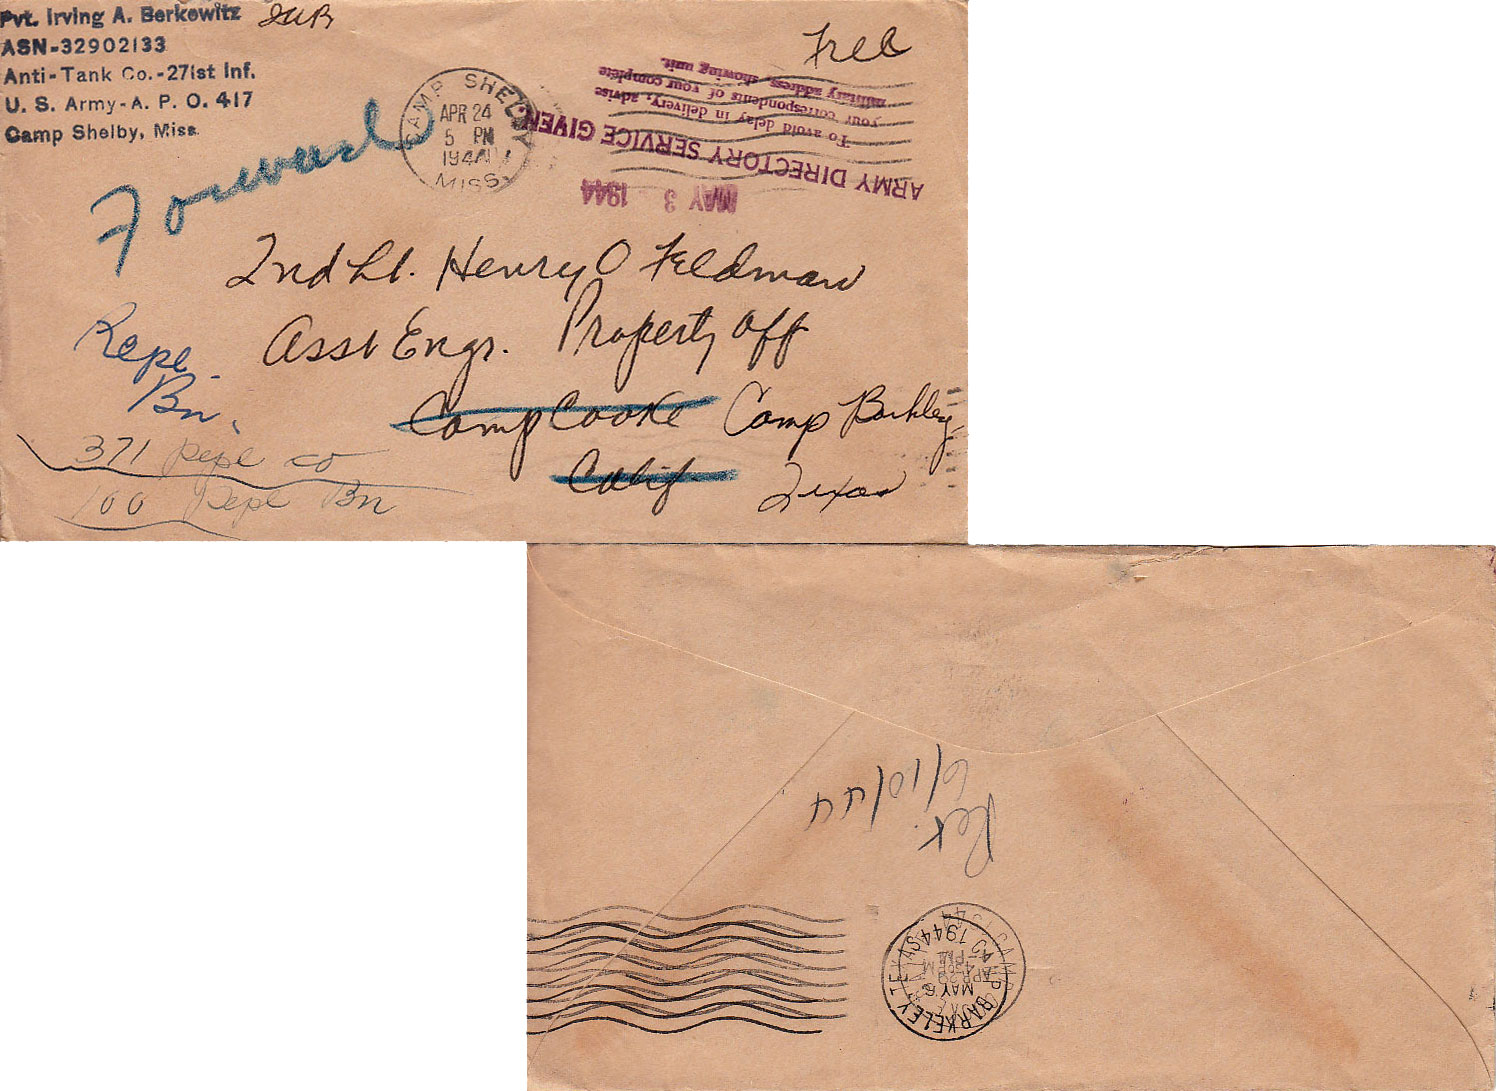 Pvt. Irving A. Berkowitz IAB
ASN-32902133
Anti-Tank Co.-271st Inf.
U. S. Army-A. P. O. 417
Camp Shelby, Miss.
Free
CAMP SHELBY
APR 24
5 PM
1944
MISS.
MAY 3 1944
ARMY DIRECTORY SERVICE GIVEN
To avoid delay in delivery, advise
your correspondents of your complete
military address, showing unit.
Forward
2nd Lt. Henry O Feldman
Asst Engr. Property Off
Camp Cooke Camp Barkley,
Calif Texas
Repl.
Bn.
371 Repl co
100 Repl Bn
Rec.
6/10/44
BARKELEY TEXAS
MAY 6
PM
1944
CAMP
APR 29